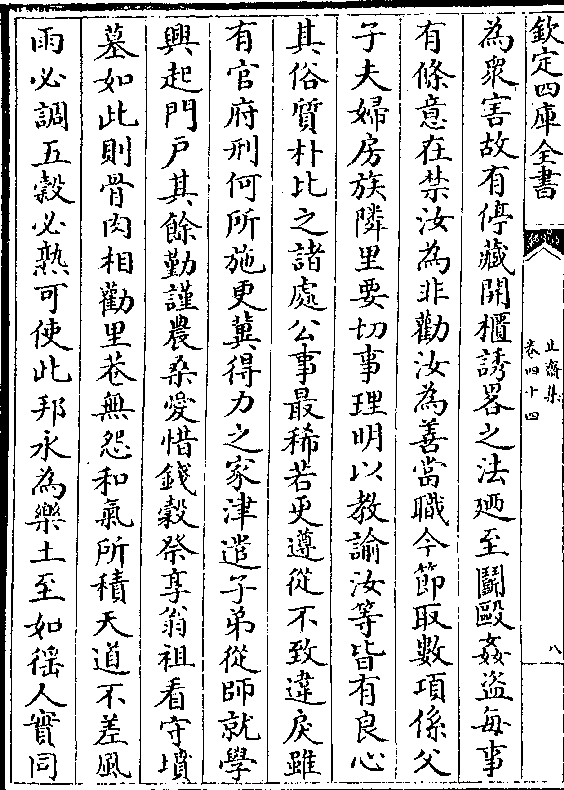 欽定四庫全書
止齋集
卷四十四
八
為衆害故有停藏開櫃誘畧之法廼至鬭毆姦盗每事
有條意在禁汝為非勸汝為善當職今節取數項係父
子夫婦房族隣里要切事理明以教諭汝等皆有良心
其俗質朴比之諸處公事最稀若更遵從不致違戾雖
有官府刑何所施更冀得力之家津遣子弟從師就學
興起門戸其餘勤謹農桑愛惜錢穀祭享翁祖看守墳
墓如此則骨肉相勸里巷無怨和氣所積天道不差風
雨必調五穀必熟可使此邦永為樂土至如徭人實同